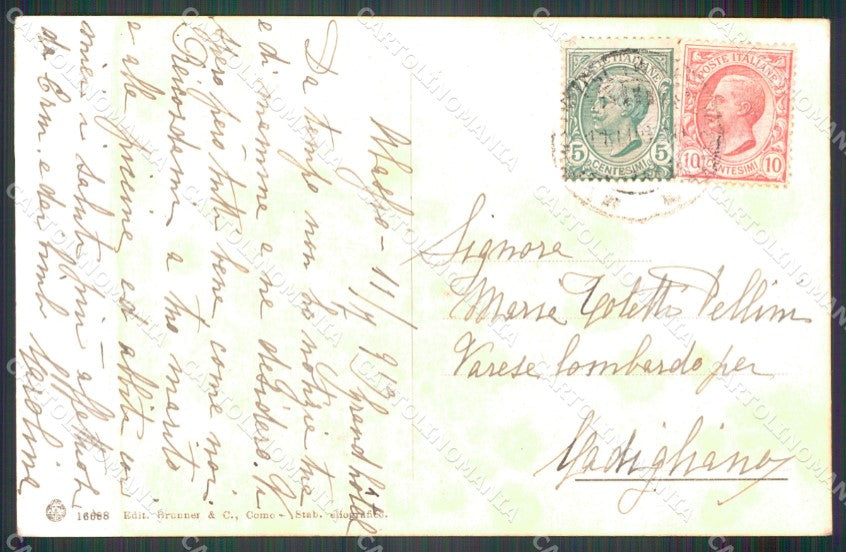 11/7 913 Grand hôtel
Da tempo non ho notizie tue
e di mamme e ne desidero.
Spero però tutti bene come noi.
Ricordami a tuo marito
e alle piccine ed abbiti coi
miei i saluti più affettuosi
da Erm. e dai bimbi
POSTE ITALIANE
5 5
CENTESIMI
POSTE ITALIANE
10 10
CENTESIMI
Signora
Maria Coletti Pellini
Varese Lombardo per
Gadigliano
16668 Edit. Brunner & C., Como - Stab. eliografico.
CARTOLINOMANIA